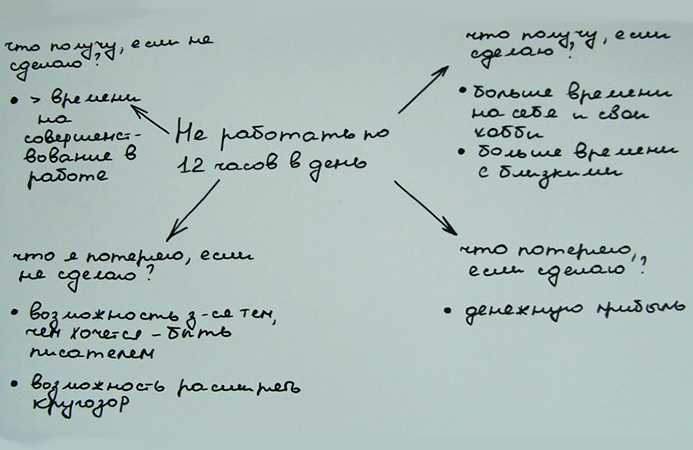 что получу, если не
сделаю?
• > времени
на
совершенст-
вование в
работе
что получу, если
сделаю?
• больше времени
на себе и свои
хобби
• больше времени
с близкими
Не работать по
12 часов в день
что я потеряю, если
не сделаю?
• возможность з-ся тем,
чем хочется – быть
писателем
• возможность расширять
кругозор
что потеряю,
если сделаю?
• денежную прибыль